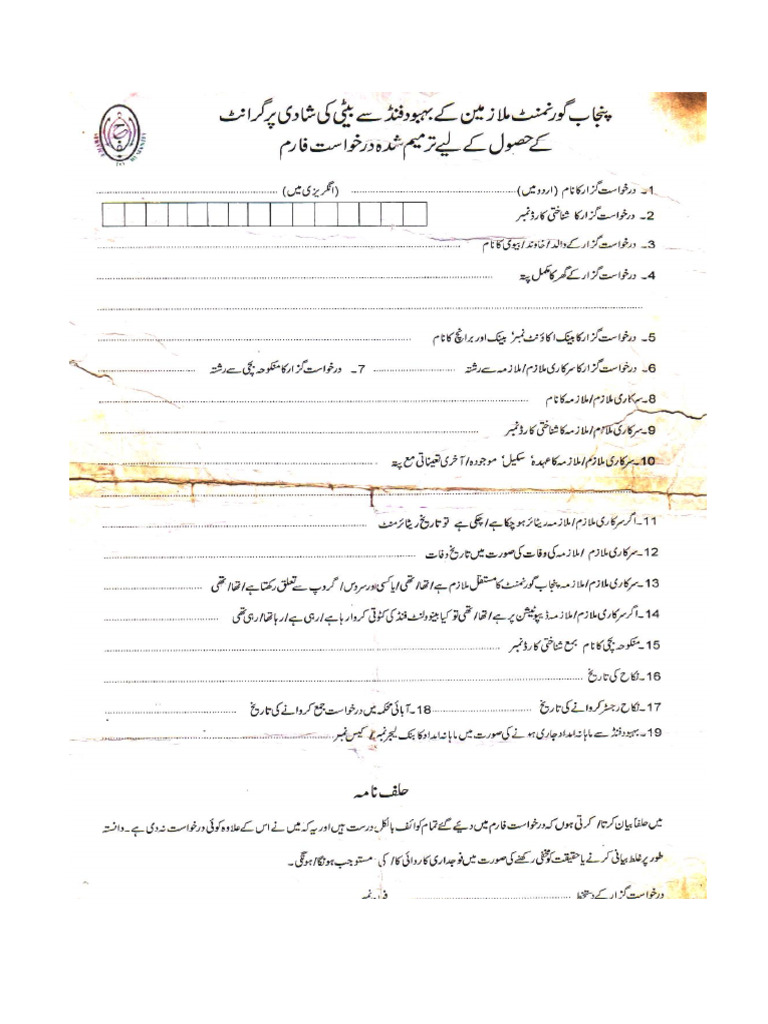 پنجاب گورنمنٹ ملازمین کے بہبود فنڈ سے بیٹی کی شادی پر گرانٹ
کے حصول کے لیے ترمیم شدہ درخواست فارم
1۔ درخواست گزار کا نام (اردو میں) (انگریزی میں)
2۔ درخواست گزار کا شناختی کارڈ نمبر
3۔ درخواست گزار کے والد/خاوند/بیوی کا نام
4۔ درخواست گزار کے گھر کا مکمل پتہ
5۔ درخواست گزار کا بینک اکاؤنٹ نمبر' بینک اور برانچ کا نام
6۔ درخواست گزار کا سرکاری ملازم/ملازمہ سے رشتہ 7۔ درخواست گزار کا منکوحہ بچی سے رشتہ
8۔ سرکاری ملازم/ملازمہ کا نام
9۔ سرکاری ملازم/ملازمہ کا شناختی کارڈ نمبر
10۔ سرکاری ملازم/ملازمہ کا عہدہ' سکیل' موجودہ/آخری تعیناتی مع پتہ
11۔ اگر سرکاری ملازم/ملازمہ ریٹائر ہو چکا ہے/چکی ہے تو تاریخ ریٹائرمنٹ
12۔ سرکاری ملازم / ملازمہ کی وفات کی صورت میں تاریخ وفات
13۔ سرکاری ملازم/ملازمہ پنجاب گورنمنٹ کا مستقل ملازم ہے/تھا/تھی/یا کسی اور سروس/گروپ سے تعلق رکھتا ہے/تھا/تھی
14۔ اگر سرکاری ملازم/ملازمہ ڈیپوٹیشن پر ہے/تھا/تھی تو کیا بینوولنٹ فنڈ کی کٹوتی کروا رہا ہے/رہی ہے/رہا تھا/رہی تھی
15۔ منکوحہ بچی کا نام بمع شناختی کارڈ نمبر
16۔ نکاح کی تاریخ
17۔ نکاح رجسٹر کروانے کی تاریخ 18۔ آبائی محکمہ میں درخواست جمع کروانے کی تاریخ
19۔ بہبود فنڈ سے ماہانہ امداد جاری ہونے کی صورت میں ماہانہ امداد کا بنک لیجر نمبر/کیس نمبر
حلف نامہ
میں حلفاً بیان کرتا/کرتی ہوں کہ درخواست فارم میں دیئے گئے تمام کوائف بالکل درست ہیں اور یہ کہ میں نے اس کے علاوہ کوئی درخواست نہ دی ہے۔ دانستہ
طور پر غلط بیانی کرنے یا حقیقت کو مخفی رکھنے کی صورت میں فوجداری کاروائی کا/کی مستوجب ہونگا/ہونگی۔
درخواست گزار کے دستخط فون نمبر